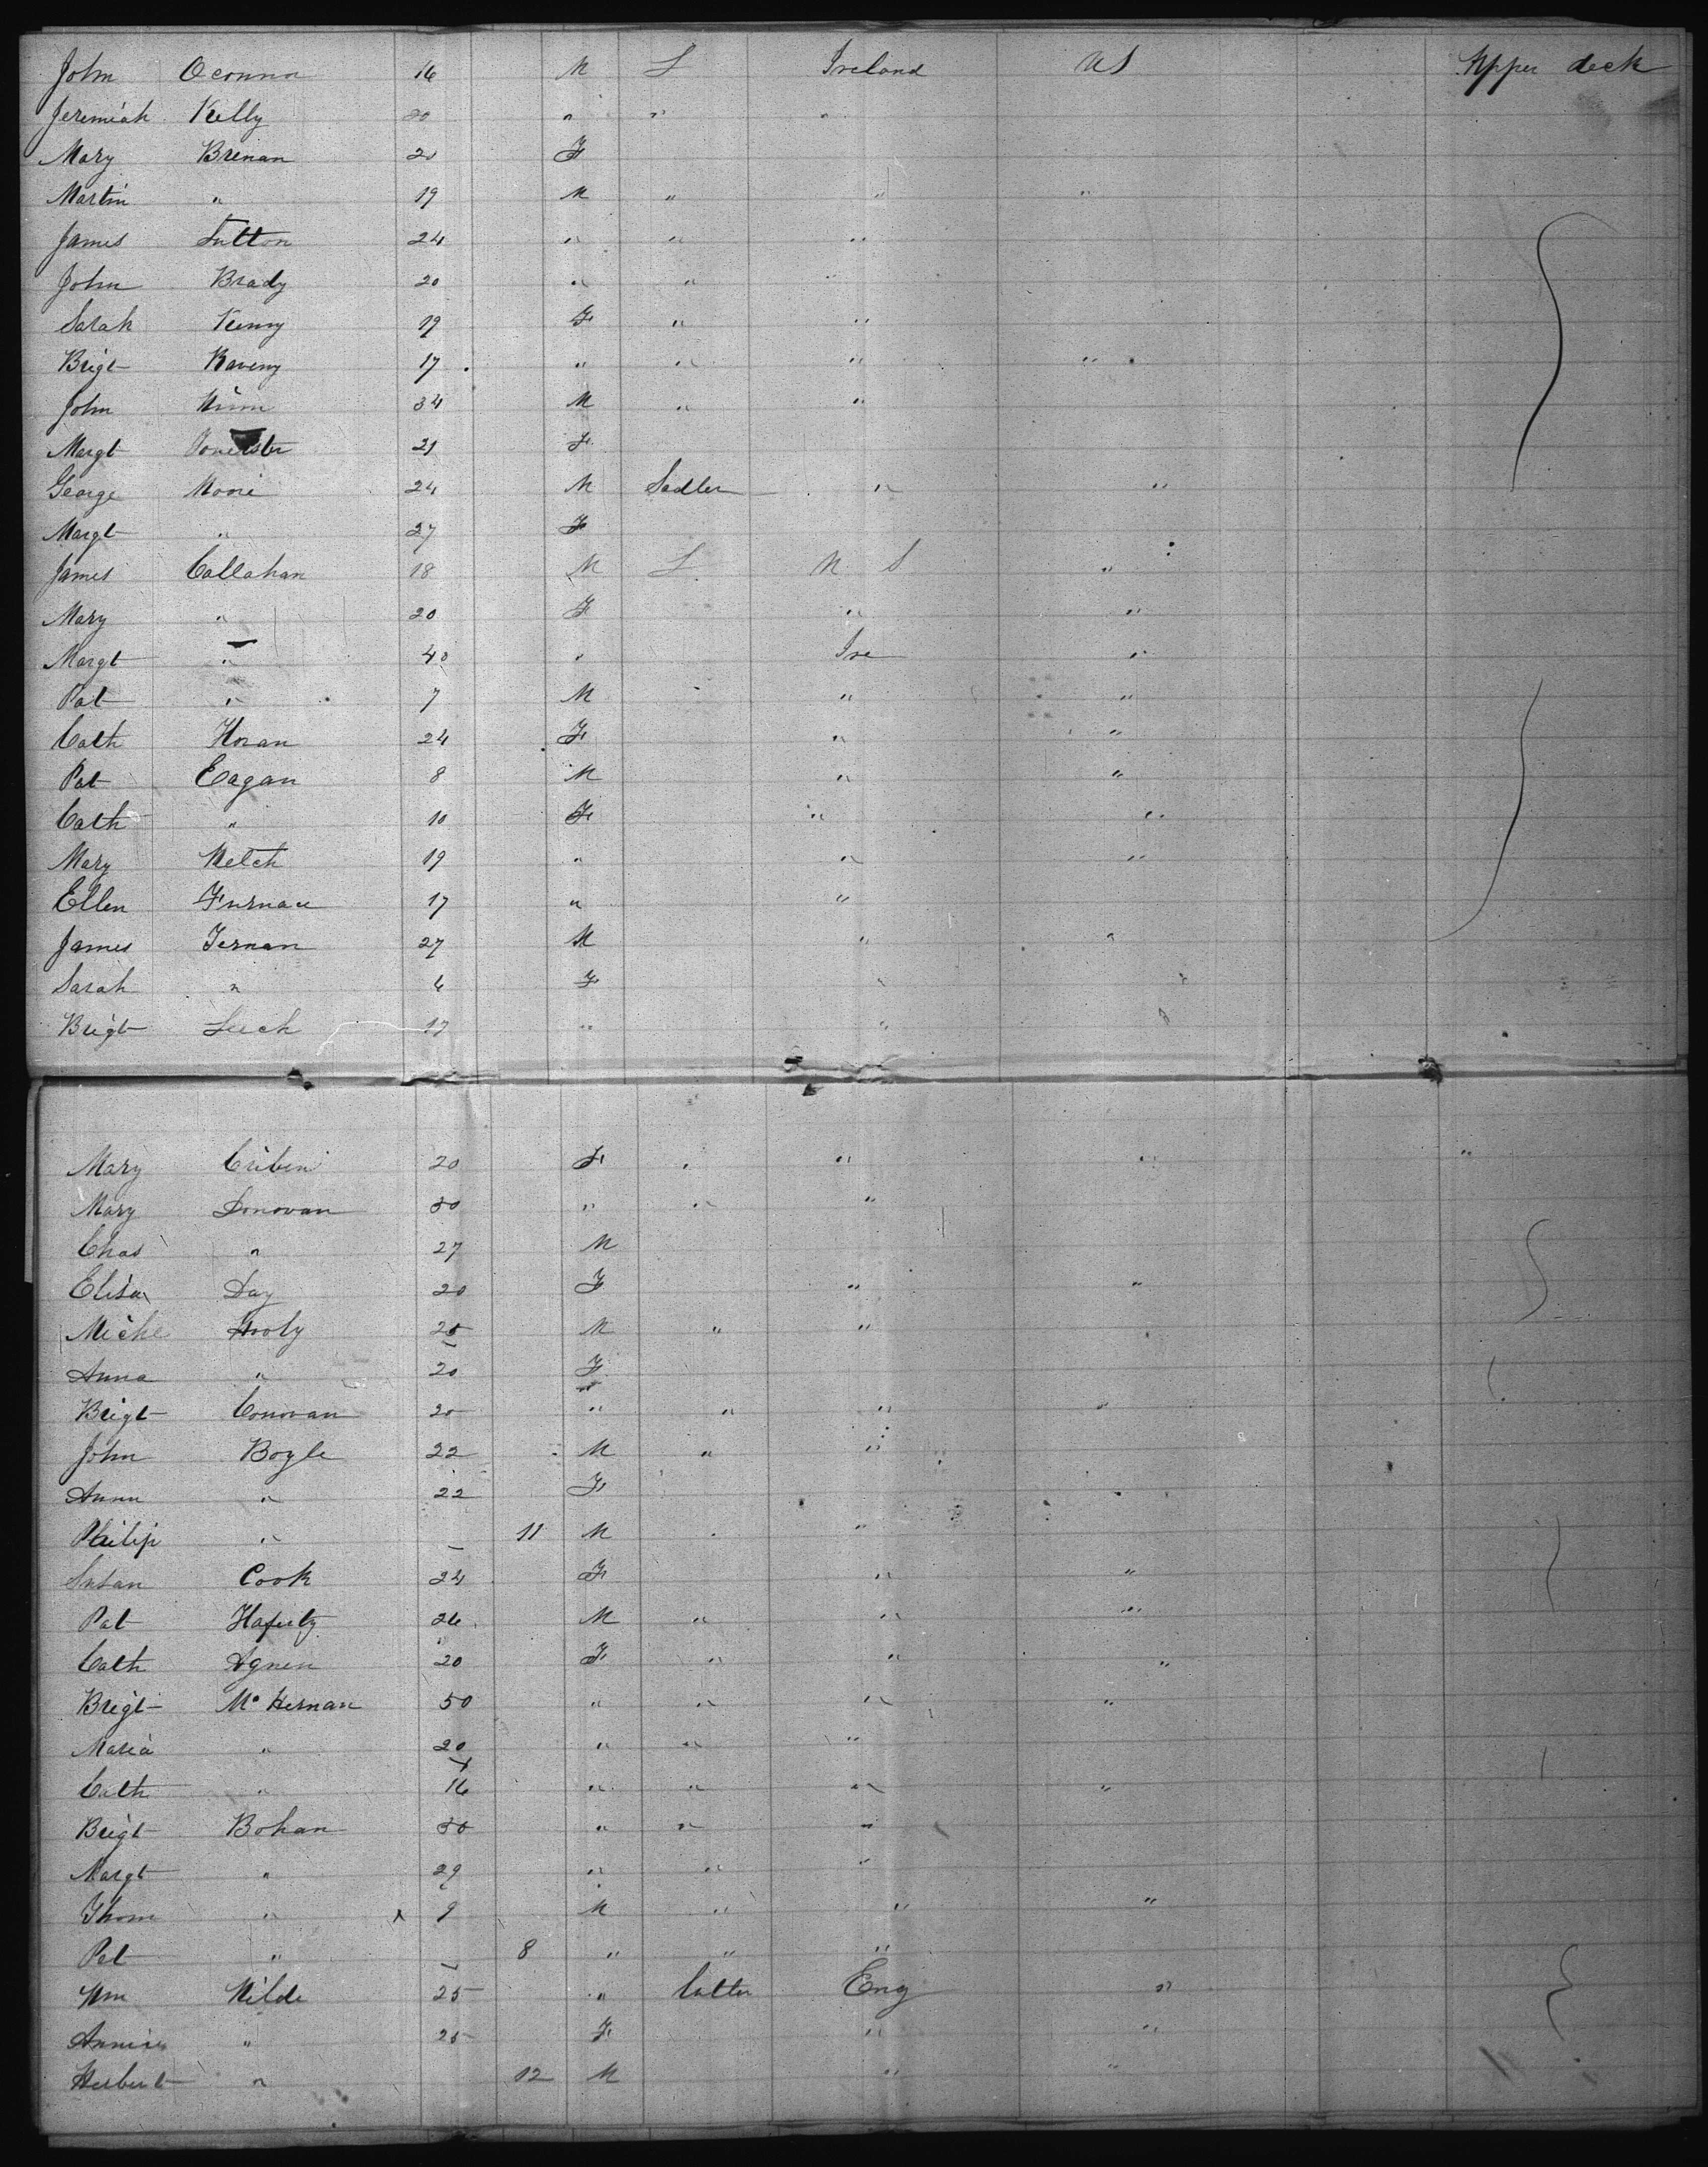 John Oconnor 16 M L Ireland US Upper deck
Jeremiah Kelly 20 " " "
Mary Brenan 20 F
Martin " 19 M " " "
James Sutton 24 " " "
John Brady 20 " "
Sarah Kenny 19 F " "
Brigt 17 " " " "
John 34 M " "
Margt 21 F
George 24 M Sadler " "
Margt " 27 F
James Callahan 18 M L US "
Mary " 20 F " "
Margt " 40 " Ire "
Pat " 7 M " "
Cath Horan 24 F " "
Pat Eagan 8 M " "
Cath " 10 F " "
Mary Welch 19 " " "
Ellen Furnace 17 " "
James 27 M " "
Sarah " 4 F "
Brigt Leech 17 " "
Mary Criben 20 F " " " "
Mary Donovan 50 " " "
Chas " 27 M
Eliza Day 20 F " "
Miche 25 M " "
Anna " 20 F
Brigt Conovan 20 " " " "
John Bogle 22 M " "
Annn " 22 F
Philip " 11 M "
Susan Cook 24 F " "
Pat Hafuty 26 M " " "
Cath Agnen 20 F " " "
Brigt Mc Kernan 50 " " " "
Maria " 20 " " "
Cath " 16 " " " "
Brigt Bohan 50 " " "
Margt " 29 " " "
Thom " x 9 M " " "
Pat " 8 " " "
Wm Wilde 25 " Cutter Eng "
Annie " 25 F " "
Herbert " 12 M " "